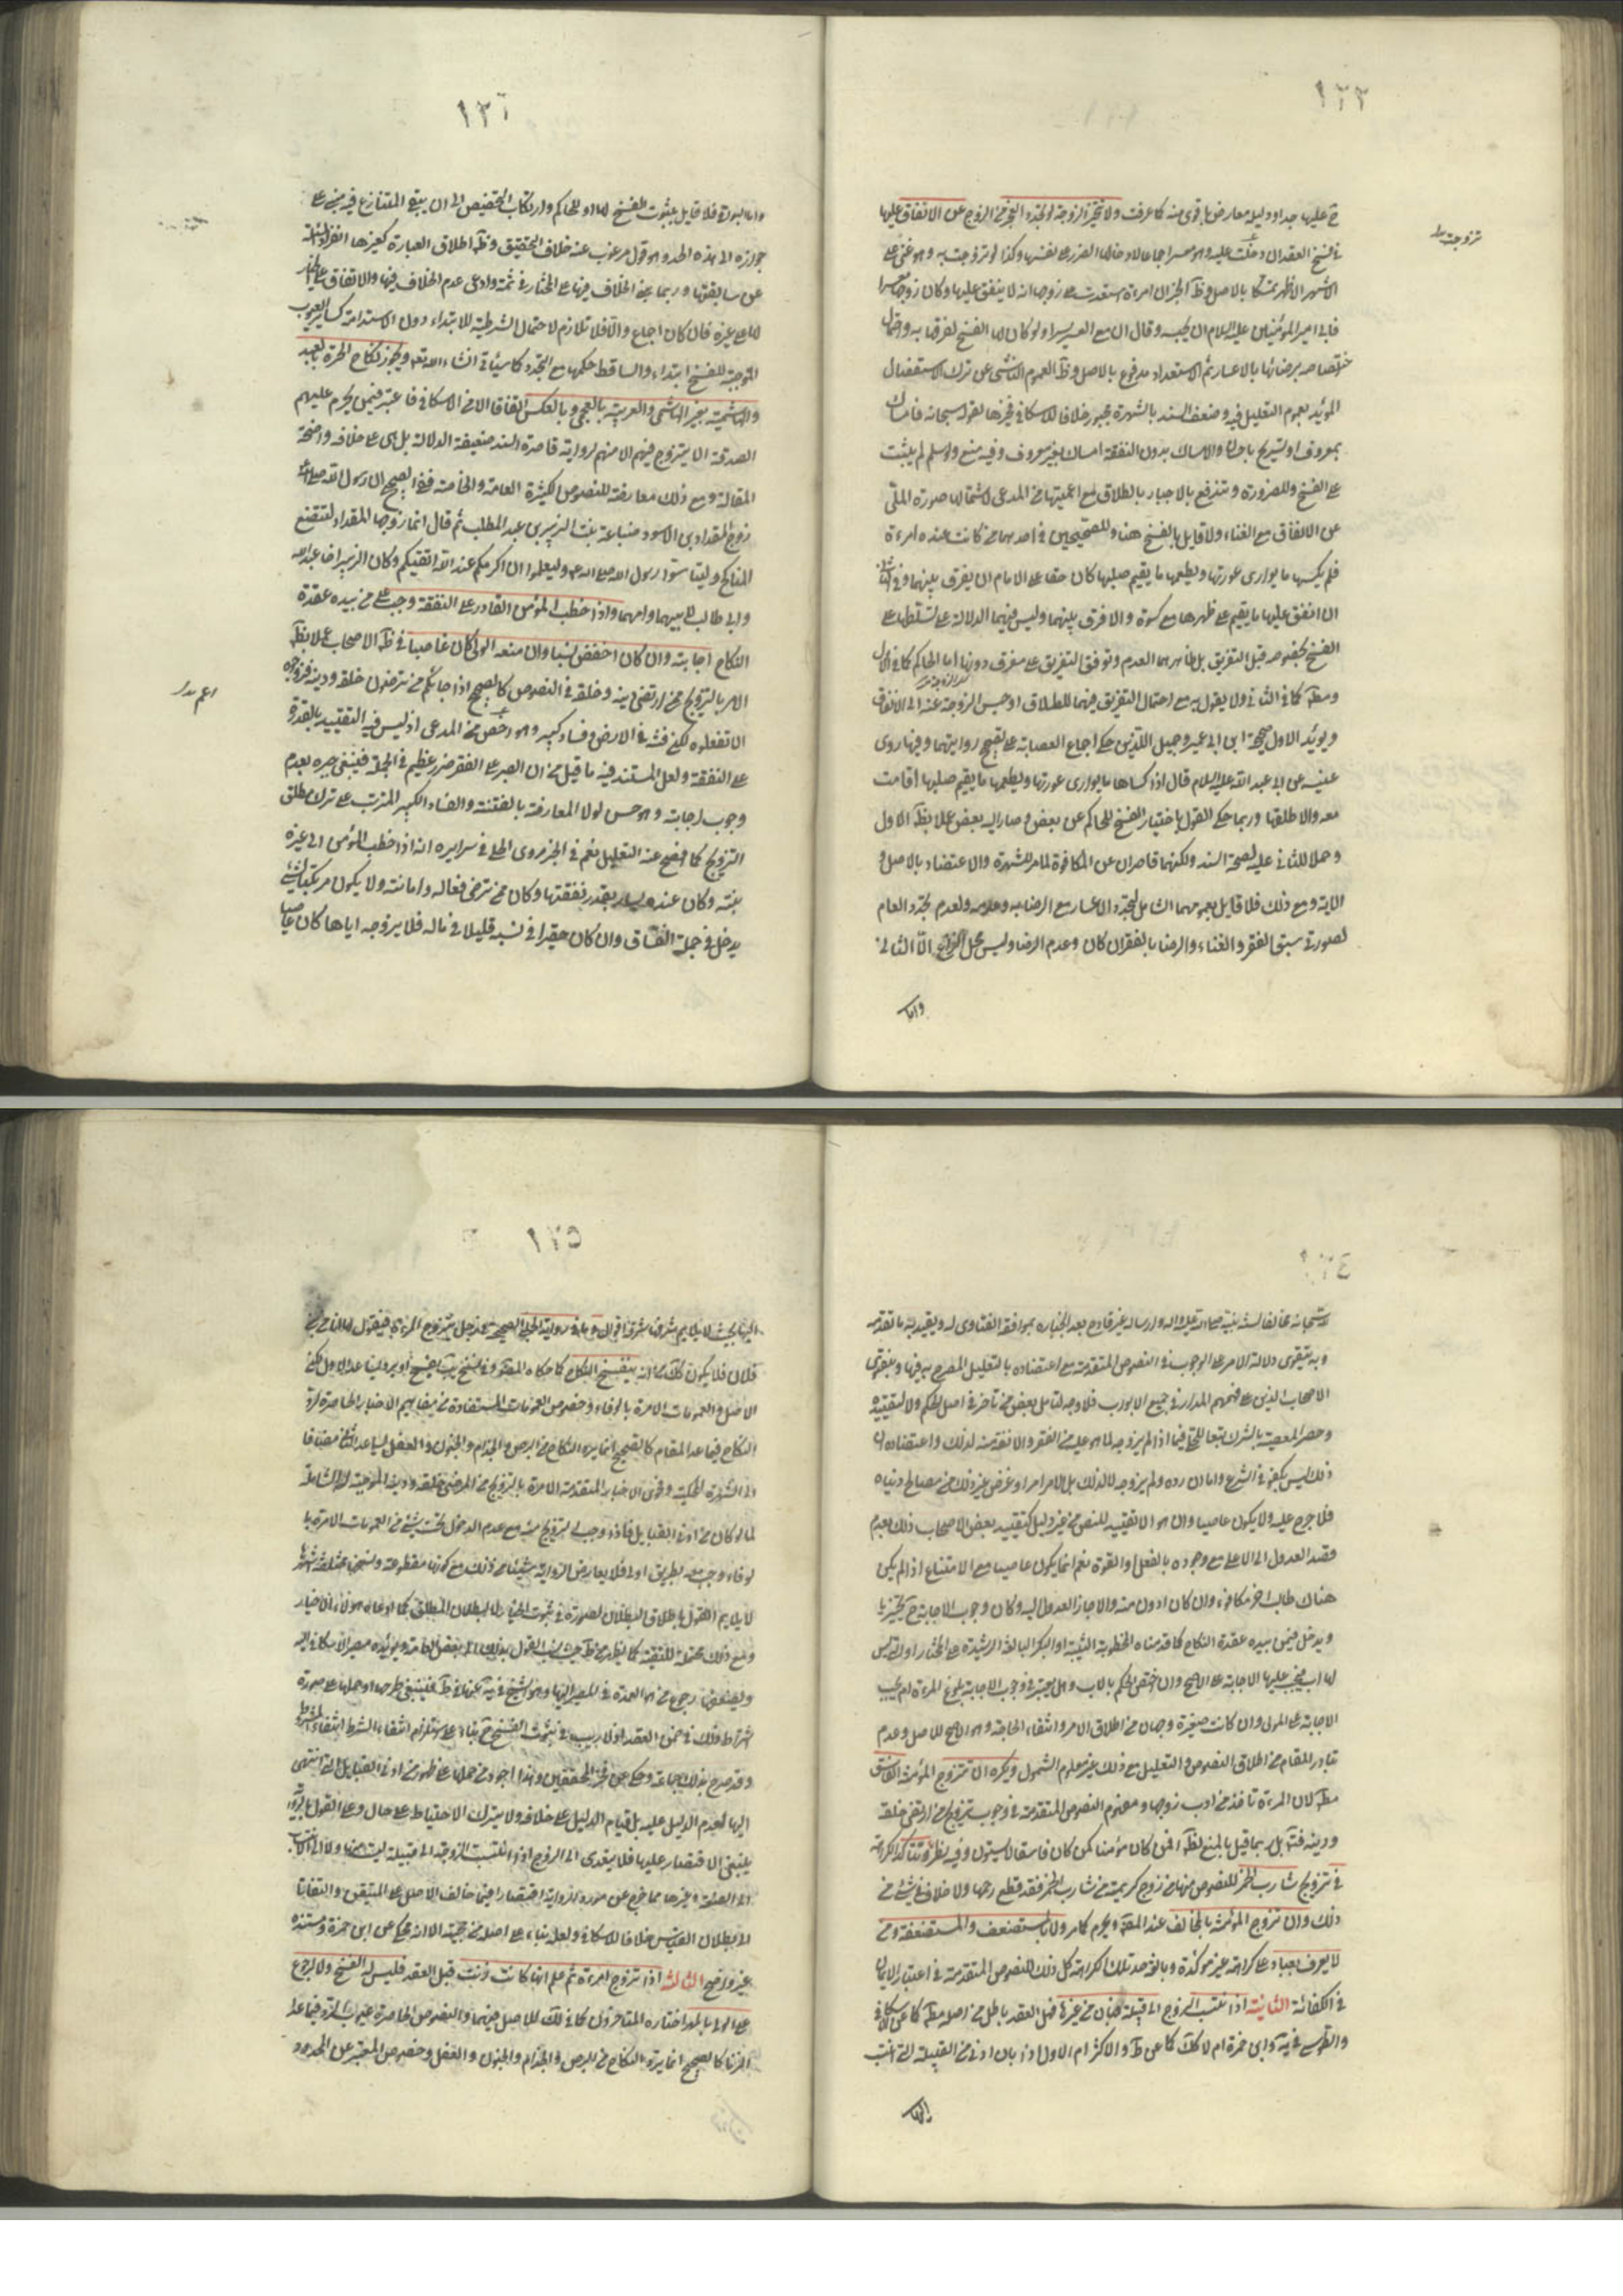 ١٢٢
ح عليها جدا ودليله معارض باقوى منه كما عرفت ولا تتخير الزوجة لو تجدد العجز من الزوج عن الانفاق عليها
في فسخ العقد ان دخلت عليه وهو معسر اجماعا لادخالها الضرر على نفسها وكذا لو تزوجت به وهو غني على
تزوجت
الاشهر الاظهر تمسكا بالاصل وظ الخبر ان امرءة استعدت على زوجها انه لا ينفق عليها وكان زوجها معسرا
فابى امير المؤمنين عليه السلام ان يحبسه وقال ان مع العسر يسرا ولو كان لها الفسخ لعرفها به واحتمال
اختصاصه برضائها بالاعسار ثم الاستعداد مدفوع بالاصل وظ العموم الناشى عن ترك الاستفصال
المؤيد بعموم التعليل فيه وضعف السند بالشهرة مجبور خلافا للاسكافي فخيرها لقوله سبحانه فامساك
بمعروف او تسريح باحسان والامساك بدون النفقة امساك بغير معروف وفيه منع ولو سلم لم يثبت
على الفسخ وللضرورة وتندفع بالاجبار بالطلاق مع اعميتها من المدعى لاشتمالها صورة الملى
عن الانفاق مع الغناء ولا قايل بالفسخ هنا وللصحيحين في احدهما من كانت عنده امرءة
فلم يكسها ما يوارى عورتها ويطعمها ما يقيم صلبها كان حقا على الامام ان يفرق بينهما وفي الثاني
ان انفق عليها ما يقيم على ظهرها مع كسوة والا فرق بينهما وليس فيهما الدلالة على تسلطها على
الفسخ بخصوصه قبل التفريق بل ظاهرهما العدم وتوقف التفريق على مفرق دونها اما الحاكم كما في الاول
ومط كما في الثاني ولا يقول به مع احتمال التفريق فيهما للطلاق او حبس الزوجة عنه الى الانفاق
ويؤيد الاول صحيحة ابن ابي عمير وجميل اللذين حكى اجماع العصابة على تصحيح روايتهما وفيها روى
عنبسه عن ابي عبد الله عليه السلام قال اذا كساها ما يوارى عورتها ويطعمها ما يقيم صلبها اقامت
معه والا طلقها وربما حكى القول باختيار الفسخ للحاكم عن بعض وصار اليه بعض عملا بظ الاول
وحملا للثاني عليه لصحة السند ولكنهما قاصران عن المكافوة لما مر للشهرة والاعتضاد بالاصل و
الاية ومع ذلك فلا قايل بعمومهما الشامل لتجدد الاعسار مع الرضا به وعدمه ولعدم تجدد العام
لصورتي سبق الفقر والغناء والرضا بالفقر ان كان وعدم الرضا وليس محل النزاع الا الثاني
واما
واما البواقي فلا قايل بثبوت الفسخ لها او للحاكم وارتكاب التخصيص الى ان يبقى المتنازع فيه مبنى على
جوازه الى هذه الحد وهو قول مرغوب عنه خلاف التحقيق وظ اطلاق العبارة كغيرها انفراد المسئلة
عن سابقتها وربما بنى الخلاف فيها على المختار في ثمة وادعى عدم الخلاف فيها والاتفاق على الخيار
للما على غيره فان كان اجماع والا فلا تلازم لاحتمال الشرطية للابتداء دون الاستدامة كساير العيوب
الموجبة للفسخ ابتداء والساقط حكمها مع التجدد كما سيأتي انشاء الله تع ويجوز نكاح الحرة بالعبد
والهاشمية بغير الهاشمي والعربية بالعجمي وبالعكس اتفاقا الا من الاسكافي فاعتبر فيمن يحرم عليهم
الصدقة الا يتزوج فيهم الا منهم لرواية قاصرة السند ضعيفة الدلالة بل هى على خلافه واضحة
المقالة ومع ذلك معارضة للنصوص الكثيرة العامة والخاصة ففي الصحيح ان رسول الله صلى الله عليه
زوج المقداد بن الاسود ضباعة بنت الزبير بن عبد المطلب ثم قال انما زوجها المقداد لتتضع
المناكح وليتاسوا برسول الله صلى الله عليه وليعلموا ان اكرمكم عند الله اتقيكم وكان الزبير اخا عبد الله
وابي طالب لابيهما وامهما واذا خطب المؤمن القادر على النفقة وجب على من بيده عقدة
النكاح اجابته وان كان اخفض نسبا وان منعه الولي كان عاصيا في ظ الاصحاب عملا بظ
الامر بالتزويج من ارتضى دينه وخلقه في النصوص كالصحيح اذا جائكم من ترضون خلقه ودينه فزوجوه
الا تفعلوه تكن فتنة في الارض وفساد كبير وهو اخص من المدعى اذ ليس فيه التقييد بالقدرة
على النفقة ولعل المستند فيه ما قيل من ان الصبر على الفقر ضرر عظيم في الجملة فينبغي جبره بعدم
وجوب اجابته وهو حسن لولا المعارضة بالفتنة والفساد الكبير المترتب على ترك مطلق
التزويج كما افصح عنه التعليل نعم في الخبر مروى الحلى في سرايره انه اذا خطب المؤمن الى غيره
بنته وكان عنده يسار بقدر نفقتها وكان ممن ترضى فعاله وامانته ولا يكون مرتكبا لشئ
يدخل في جملة الفساق وان كان حقيرا في نسبه قليلا في ماله فلا يزوجه اياها كان عاصيا
١٢٤
لله سبحانه مخالفا لسنة نبيه صلوات الله عليه واله وارساله غير قادح بعد انجباره بموافقة الفتاوى له وتقييد به ما تقدمه
وبه يتقوى دلالة الامر على الوجوب في النصوص المتقدمة مع اعتضاده بالتعليل المصرح به فيها وبفتوى
الاصحاب الذين على فهمهم المدار في جميع الابواب فلا وجه لتامل بعض من تاخر في اصل الحكم ولا لتقييده
وحصر المعصية بالترك تبعا للحلى فيما اذا لم يزوجه لما هو عليه من الفقر والانفة منه لذلك واعتقاده ان
ذلك ليس بكفو في الشرع واما ان رده ولم يزوجه لا لذلك بل لامر اخر او غرض غير ذلك من مصالح دنياه
فلا حرج عليه ولا يكون عاصيا وان هو الا تقييد للنص من غير دليل كتقييد بعض الاصحاب ذلك بعدم
قصد العدول الى الاعلى مع وجوده بالفعل او القوة نعم انما يكون عاصيا مع الامتناع اذا لم يكن
هناك طالب اخر مكافؤ وان كان ادون منه والا جاز العدول اليه وكان وجوب الاجابة ح تخييريا
ويدخل فيمن بيده عقدة النكاح كما قدمناه المخطوبة الثيبة او البكر البالغة الرشيدة على المختار او التى ليس
لها اب فيجب عليها الاجابة على الاصح وان اختص الحكم بالاب وهل يعتبر في وجوب الاجابة بلوغ المرءة ام يجب
الاجابة على المولى وان كانت صغيرة وجهان من اطلاق الامر وانتفاء الحاجة وهو الاصح للاصل وعدم
تبادر المقام من اطلاق النصوص والتعليل مع ذلك غير معلوم الشمول ويكره ان تتزوج المؤمنة الفاسق
مط لان المرءة تاخذ من ادب زوجها ومفهوم النصوص المتقدمة في وجوب تزويج من ارتضى خلقه
ودينه فتامل بل ربما قيل بالمنع لظ افمن كان مؤمنا كمن كان فاسقا لا يستون وفيه نظر وتتاكد الكراهة
في تزويج شارب الخمر للنصوص منها من زوج كريمته من شارب الخمر فقد قطع رحمها ولا خلاف في شئ من
ذلك وان تتزوج المؤمنة بالمخالف عند المص ويحرم كما مر ولا باس بالمستضعف والمستضعفة ومن
لا يعرف بعناد على كراهة غير مؤكدة وبالغ صد تلك الكراهة كل ذلك للنصوص المتقدمة في اعتبار الايمان
في الكفائة الثانية اذا انتسب الزوج الى قبيلة فبان من غيرها فهل العقد باطل من اصله مط كما عن الاسكافي
والطوسي في ية وابن حمزة ام لا كك كما عن ط والاكثر ام الاول اذا بان ادنى من القبيلة التى انتسب
اليها
١٢٥
اليها بحيث لا يلايم شرفها شرفه اقوال وبه رواية الحلبي الصحيحة عن رجل يتزوج المرءة فيقول لها انا من
فلان فلا يكون كك قال انه ينفسخ النكاح كما حكاه المص وفي نسخ يب يفسخ او يرد وليساعد الاول لكن
الاصل والعمومات الامرة بالوفاء وخصوص العمومات المستفادة من مفاهيم الاخبار الحاصرة لرد
النكاح فيما عدا المقام كالصحيح انما يرد النكاح من البرص والجذام والجنون والعفل يساعد الثاني مضافا
الى الشهرة المحكية وفحوى الاخبار المتقدمة الامرة بالتزويج من المرضى خلقه ودينه الموجبة له الشاملة
لما لو كان من ادنى القبايل فاذا وجب التزويج منه مع عدم الدخول تحت شئ من العمومات الامرة بال
وفاء وجب معه بطريق اولى فلا يعارض الرواية شيئا من ذلك مع كونها مقطوعة
لا يلايم القول باطلاق البطلان لصورته في ثبوت الخيار لا البطلان المطلق كما ادعاه هؤلاء الاخيار
ومع ذلك محتملة للتقية كما يظهر من ط حيث نسب القول بذلك الى بعض العامة ويؤيده مصير الاسكافي اليه
ويضعفه رجوع من هو العمدة في المصير اليها وهو الشيخ في ية عنها في ط فينبغي طرحها او حملها على صورة
اشتراط ذلك في ضمن العقد اذ لا ريب في ثبوت الفسخ ح بناء على استلزام انتفاء الشرط انتفاء المشروط
وقد صرح بذلك جماعة وحكى عن فخر المحققين وهذا اجود من حملها على ظهور من ادنى القبايل التى انتهى
اليها لعدم الدليل عليه بل قيام الدليل على خلافه ولا يترك الاحتياط على حال وعلى القول بالرد
ينبغي الاقتصار عليها فلا يتعدى الى الزوج اذا انتسبت الزوجة الى قبيلة ليست منها ولا الى الانتساب
الى الصنعة وغيرها مما خرج عن مورد الرواية اقتصارا فيما خالف الاصل على المتيقن والتفاتا
الى بطلان القياس خلافا للاسكافي ولعله بناء على اصله من حجيته الا انه محكى عن ابن حمزة ومستنده
غير واضح الثالثة اذا تزوج امرءة ثم علم انها كانت زنت قبل العقد فليس له الفسخ ولا الرجوع
على الولي بالمهر اختاره المتاخرون كما في لك للاصل فيهما والنصوص الحاصرة لعيوب الرد فيما عدا
الزنا كالصحيح انما يرد النكاح من البرص والجذام والجنون والعفل وخصوص المعتبر عن المحدود